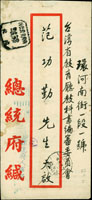 環河南街一段 號
台灣省教育廳教科書編審委員會
范功勤先生 大啟
總統府緘